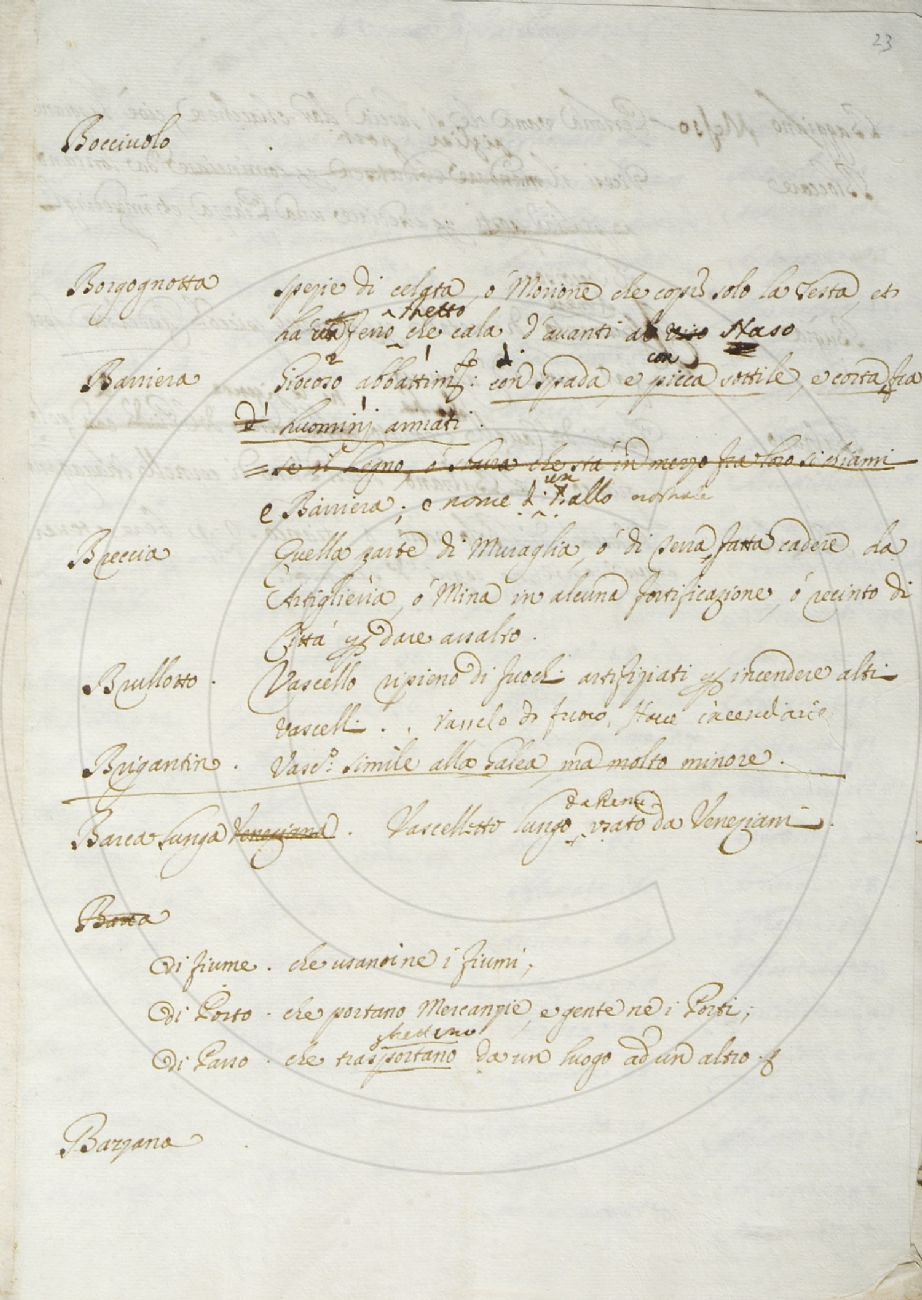 23
Bocciuolo
Borgognotta spezie di celata, ó Morione che copre solo la Testa, et
ha un ferro ghetto che cala d'auanti al viso Naso
Barriera Giocoso abbattim.to di con spada, e con picca sottile, e corta fra
d' huominj armati.
se il Legno, ó che stà in mezzo fra loro si chiami
e Barriera; e nome di un Ballo
Breccia Quella parte di Muraglia, ó di Terra fatta cadere da
Artiglieria, ó Mina in alcuna fortificazione, ó recinto di
Città per dare assalto.
Brullotto. Vascello ripieno di fuochi artifiziati per incendere altri
vascelli. Vascelo di fuoco, Naue incendiarie
Brigantin. Vasc.o simile alla Galea, ma molto minore.
Barca Lunga Veneziana. Vascelletto lungo da Remi, usato da Veneziani.
Barca
di fiume. che usano i ne i fiumi;
di Porto. che portano Mercanzie, e gente ne i Porti;
di Passo. che trasportano da un luogo ad un altro.
Bazzana